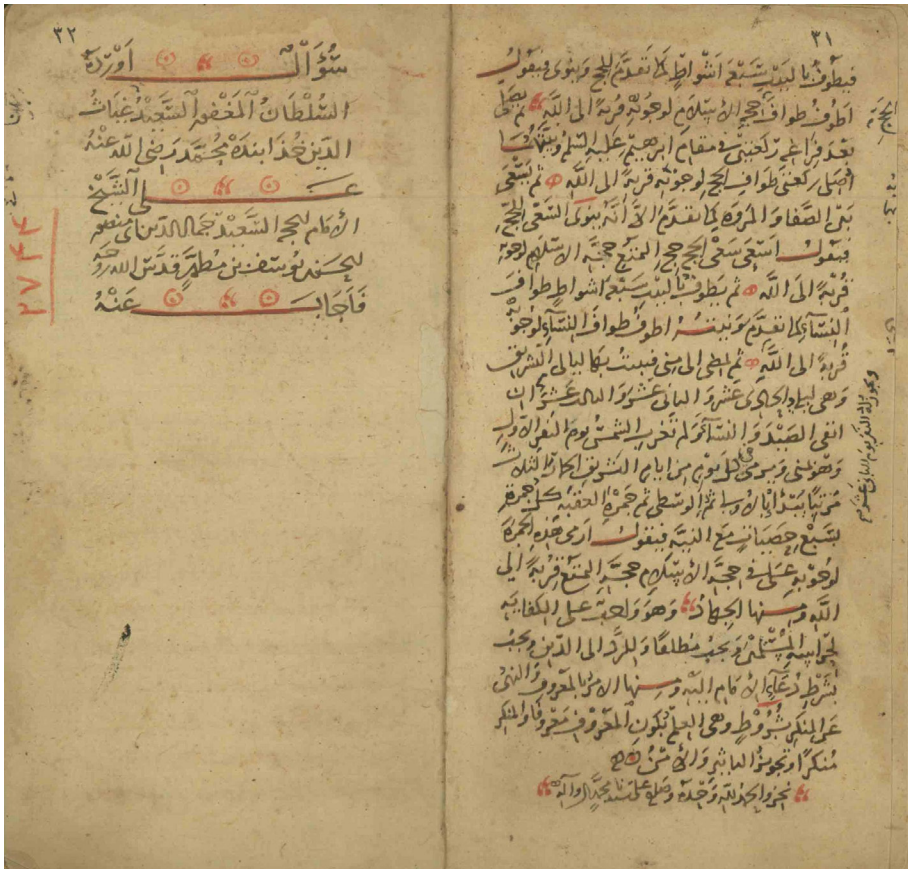 ٣١
فيطوف بالبيت سبعة اشواط كما تقدم للحج وينوى فيقول
اطوف طواف حج الاسلام لوجوبه قربة الى الله ثم يصلى
بعد فراغه ركعتين فى مقام ابرهيم عليه السلم ونيتها
اصلى ركعتى طواف الحج لوجوبه قربة الى الله ثم يسعى
بين الصفا والمروة كما تقدم الا انه ينوى السعى للحج
فيقول اسعى سعى الحج حج التمتع حجة الاسلام لوجوبه
قربة الى الله ثم يطوف بالبيت سبعة اشواط طواف
النساء كما تقدم ونيته اطوف طواف النساء لوجوبه
قربة الى الله ثم يمضى الى منى فيبيت بها ليالى التشريق
وهى ليلة الحادى عشر والثانى عشر والثالث عشر ان
اتقى الصيد والنساء ولم تغرب الشمس يوم النفر الاول
وهو بمنى ويرمى كل يوم من ايام التشريق الجمار الثلاث
مرتبا يبدا بالاولى ثم الوسطى ثم جمرة العقبة كل جمرة
بسبع حصيات مع النية فيقول ارمى هذه الجمرة
لوجوبه على فى حجة الاسلام حجة التمتع قربة الى
الله ومنها الجهاد وهو واجب على الكفاية
لحراسة المسلمين ويجب مطلقا وللرد الى الدين ويجب
بشرط دعاء الامام اليه ومنها الامر بالمعروف والنهى
عن المنكر بشروط وهى العلم بكون المعروف معروفا والمنكر
منكرا وتجويز التاثير والامن
نجز والحمد لله وحده وصلى على سيدنا محمد وآله
٣٢
سؤال اورده
السلطان المغفور السعيد غياث
الدين خذابنده محمد رضى الله عنه
على الشيخ
الامام السعيد جمال الدين ابى منصور
الحسن بن يوسف بن مطهر قدس الله روحه
فاجاب عنه
٢٧٤٤